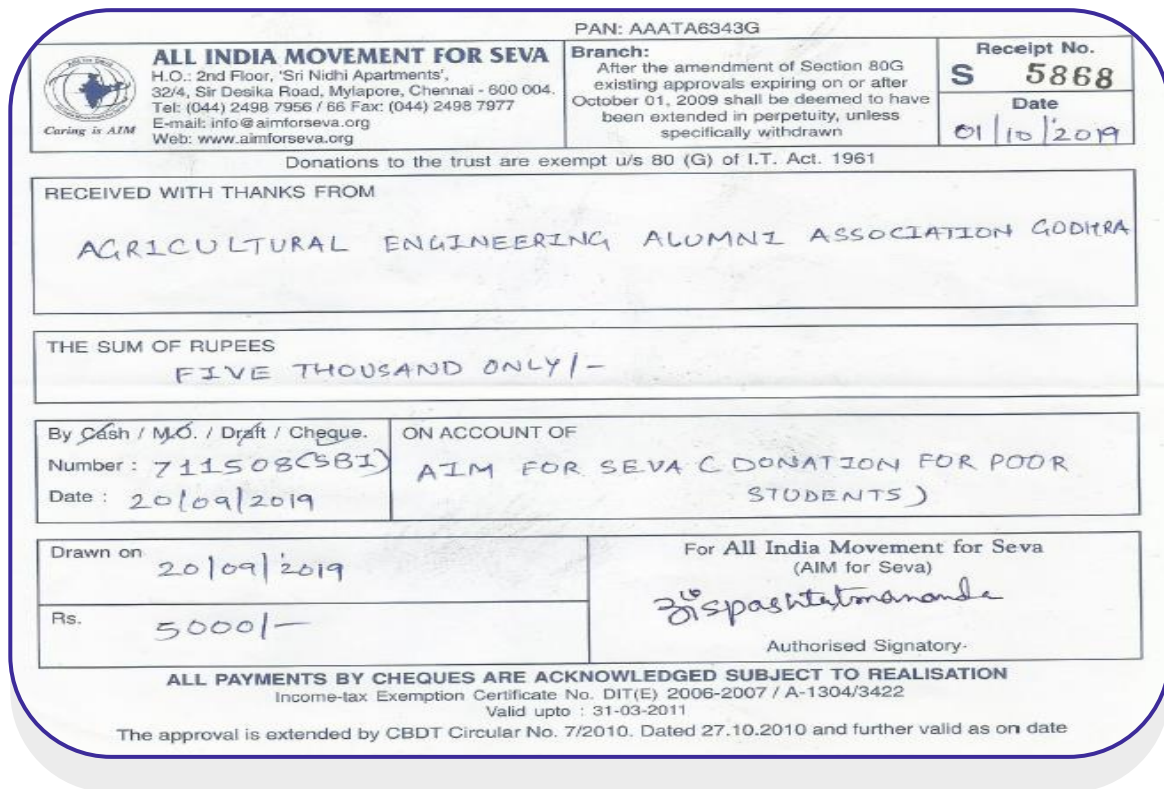 PAN: AAATA6343G
ALL INDIA MOVEMENT FOR SEVA
H.O.: 2nd Floor, 'Sri Nidhi Apartments',
32/4, Sir Desika Road, Mylapore, Chennai - 600 004.
Tel: (044) 2498 7956 / 66 Fax: (044) 2498 7977
E-mail: info@aimforseva.org
Web: www.aimforseva.org
Caring is AIM
Branch:
After the amendment of Section 80G
existing approvals expiring on or after
October 01, 2009 shall be deemed to have
been extended in perpetuity, unless
specifically withdrawn
Receipt No.
S 5868
Date
01/10/2019
Donations to the trust are exempt u/s 80 (G) of I.T. Act. 1961
RECEIVED WITH THANKS FROM
AGRICULTURAL ENGINEERING ALUMNI ASSOCIATION GODHRA
THE SUM OF RUPEES
FIVE THOUSAND ONLY/-
By Cash / M.O. / Draft / Cheque.
Number : 711508(SBI)
Date : 20/09/2019
ON ACCOUNT OF
AIM FOR SEVA (DONATION FOR POOR
STUDENTS)
Drawn on
20/09/2019
Rs. 5000/-
For All India Movement for Seva
(AIM for Seva)
Authorised Signatory
ALL PAYMENTS BY CHEQUES ARE ACKNOWLEDGED SUBJECT TO REALISATION
Income-tax Exemption Certificate No. DIT(E) 2006-2007 / A-1304/3422
Valid upto : 31-03-2011
The approval is extended by CBDT Circular No. 7/2010. Dated 27.10.2010 and further valid as on date